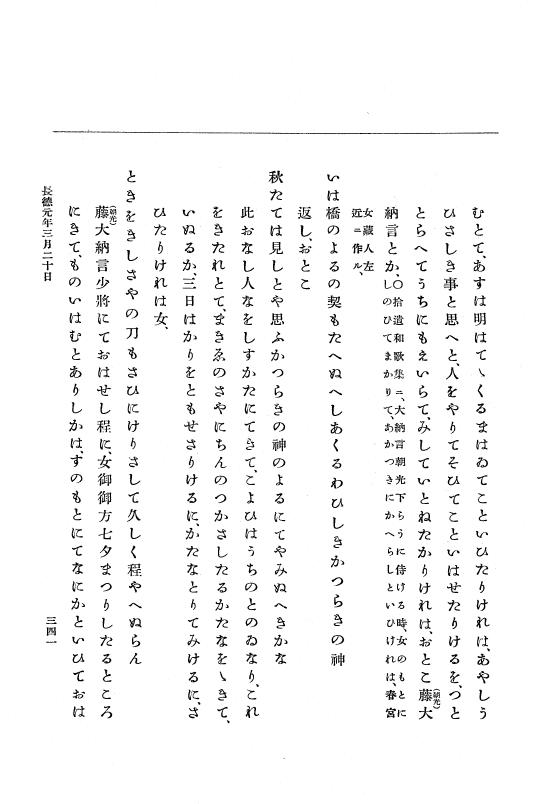 むとて、あすは明はてゝくるまはゐてこといひたりけれは、あやしう
ひさしき事と思へと、人をやりてそひてこといはせたりけるを、つと
とらへてうちにもえいらて、みしていとねたかりけれは、おとこ藤大(朝光)
納言とか、〇拾遺和歌集ニ、大納言朝光下らうに侍ける時、女のもとに
しのひてまかりて、あかつきにかへらしといひけれは、春宮
女蔵人左
近ニ作ル、
いは橋のよるの契もたへぬへしあくるわひしきかつらきの神
返し、おとこ
秋たては見しとや思ふかつらきの神のよるにてやみぬへきかな
此おなし人なをしすかたにてきて、こよひはうちのとのゐなり、これ
をきたれとて、まきゑのさやにちんのつかさしたるかたなをゝきて、
いぬるか、三日はかりをともせさりけるに、かたなとりてみけるに、さ
ひたりけれは女、
ときをきしさやの刀もさひにけりさして久しく程やへぬらん
藤(朝光)大納言少將にておはせし程に、女御御方七夕まつりしたるところ
にきて、ものいはむとありしかは、すのもとにてなにかといひておは
長德元年三月二十日
三四一